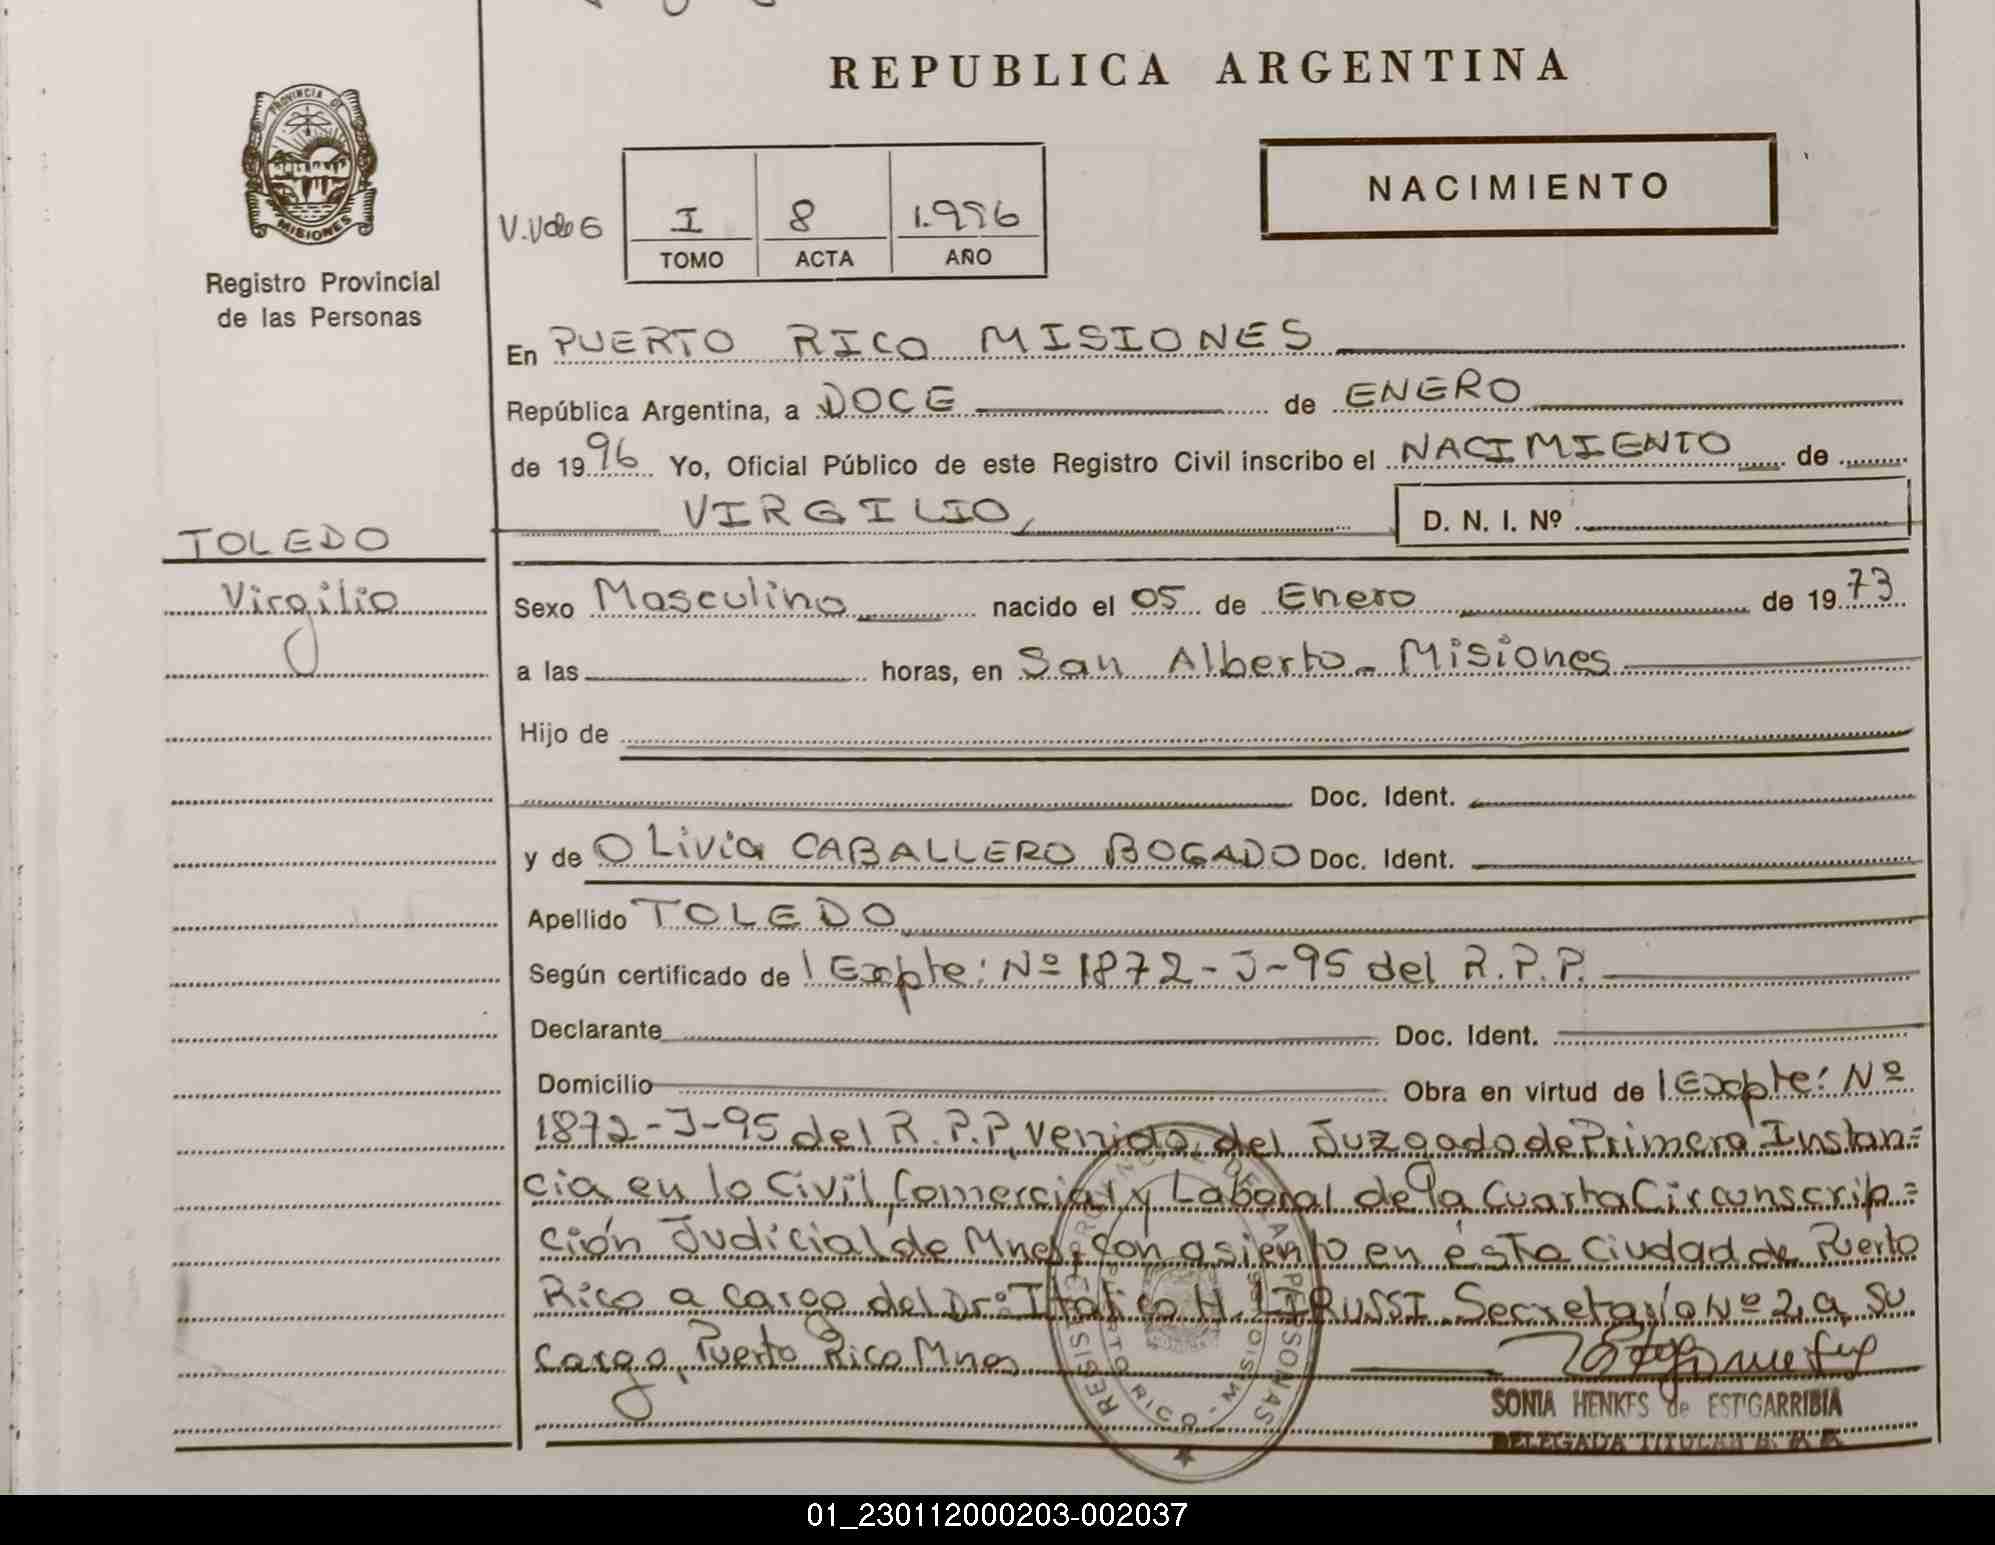 REPUBLICA ARGENTINA
PROVINCIA DE
MISIONES
Registro Provincial
de las Personas
NACIMIENTO
I 8 1.996
TOMO ACTA AÑO
En PUERTO RICO MISIONES
República Argentina, a DOCE de ENERO
de 1996 Yo, Oficial Público de este Registro Civil inscribo el NACIMIENTO de
VIRGILIO,
D. N. I. Nº
TOLEDO
Virgilio
Sexo Masculino nacido el 05 de Enero de 1973
a las horas, en San Alberto - Misiones
Hijo de
Doc. Ident.
y de OLivia CABALLERO BOGADO Doc. Ident.
Apellido TOLEDO
Según certificado de | Expte: Nº 1872-J-95 del R.P.P.
Declarante Doc. Ident.
Domicilio Obra en virtud de | Expte: Nº
1872-J-95 del R.P.P, venido del Juzgado de Primera Instan=
cia en lo Civil, Comercial y Laboral de la Cuarta Circunscrip=
ción Judicial de Mnes, con asiento en ésta Ciudad de Puerto
Rico a cargo del Dr: Italico H. LIRUSSI Secretaría Nº 2, a su
cargo, Puerto Rico Mnes
REGISTRO PROVINCIAL DE LAS PERSONAS
PUERTO RICO - MISIONES
SONIA HENKES de ESTIGARRIBIA
DELEGADA TITULAR
01_230112000203-002037